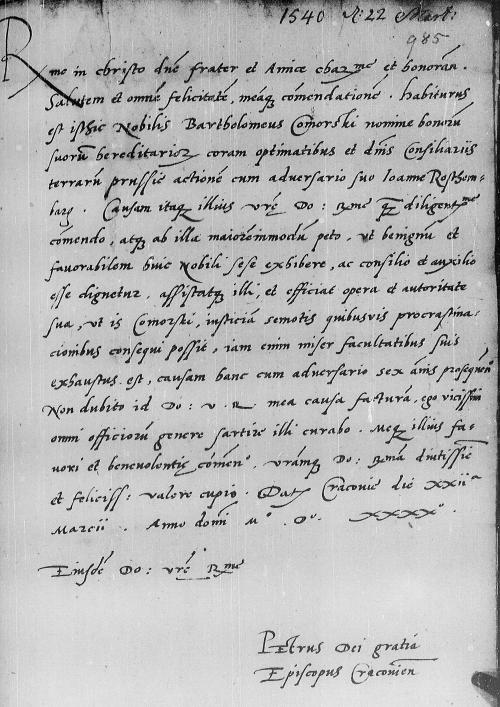 1540 A: 22 Mart:
985
Rme in christo dñe frater et Amice charme et honorañ.
Salutem et omnē felicitatē, meāq; cōmendationē. Habiturus
est isthic Nobilis Bartholomeus Comorski nomine bonorū
suorum hereditarior coram optimatibus et dñis Consiliariis
terrarū prussie actionē cum adversario suo Ioanne Rosthem-
barg. Causam itaq; illius vrē Do: Rme diligentme
cōmendo, atq; ab illa maioremīmodū peto, vt benignū et
favorabilem huic Nobili sese exhibere, ac consilio et auxilio
esse dignetur, assistatq; illi, et efficiat opera et autoritate
sua, vt is Comorski, iusticiā semotis quibusvis procrastina-
cionibus consequi possit, iam enim miser facultatibus suis
exhaustus est, causam hanc cum adversario sex añis prosequeñ
Non dubito id Do: v. R. mea causa facturā, ego vicissim
omni officiorū genere sartire illi curabo. Meq; illius fa-
vori et benevolentie cōmeno. vrāmq; Do: Rmā diutissie
et feliciss: valere cupio. Dat Cracovie die XXIIa
Marcii. Anno domi Mo. Do. XXXXo.
Eiusdē Do: vrē Rme
Petrus Dei gratia
Episcopus Cracovien